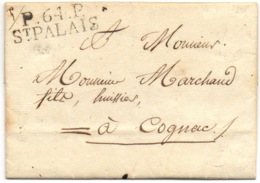 P.64.P.
ST PALAIS
A Monsieur
Monsieur Marchand
fils, huissier,
à Cognac